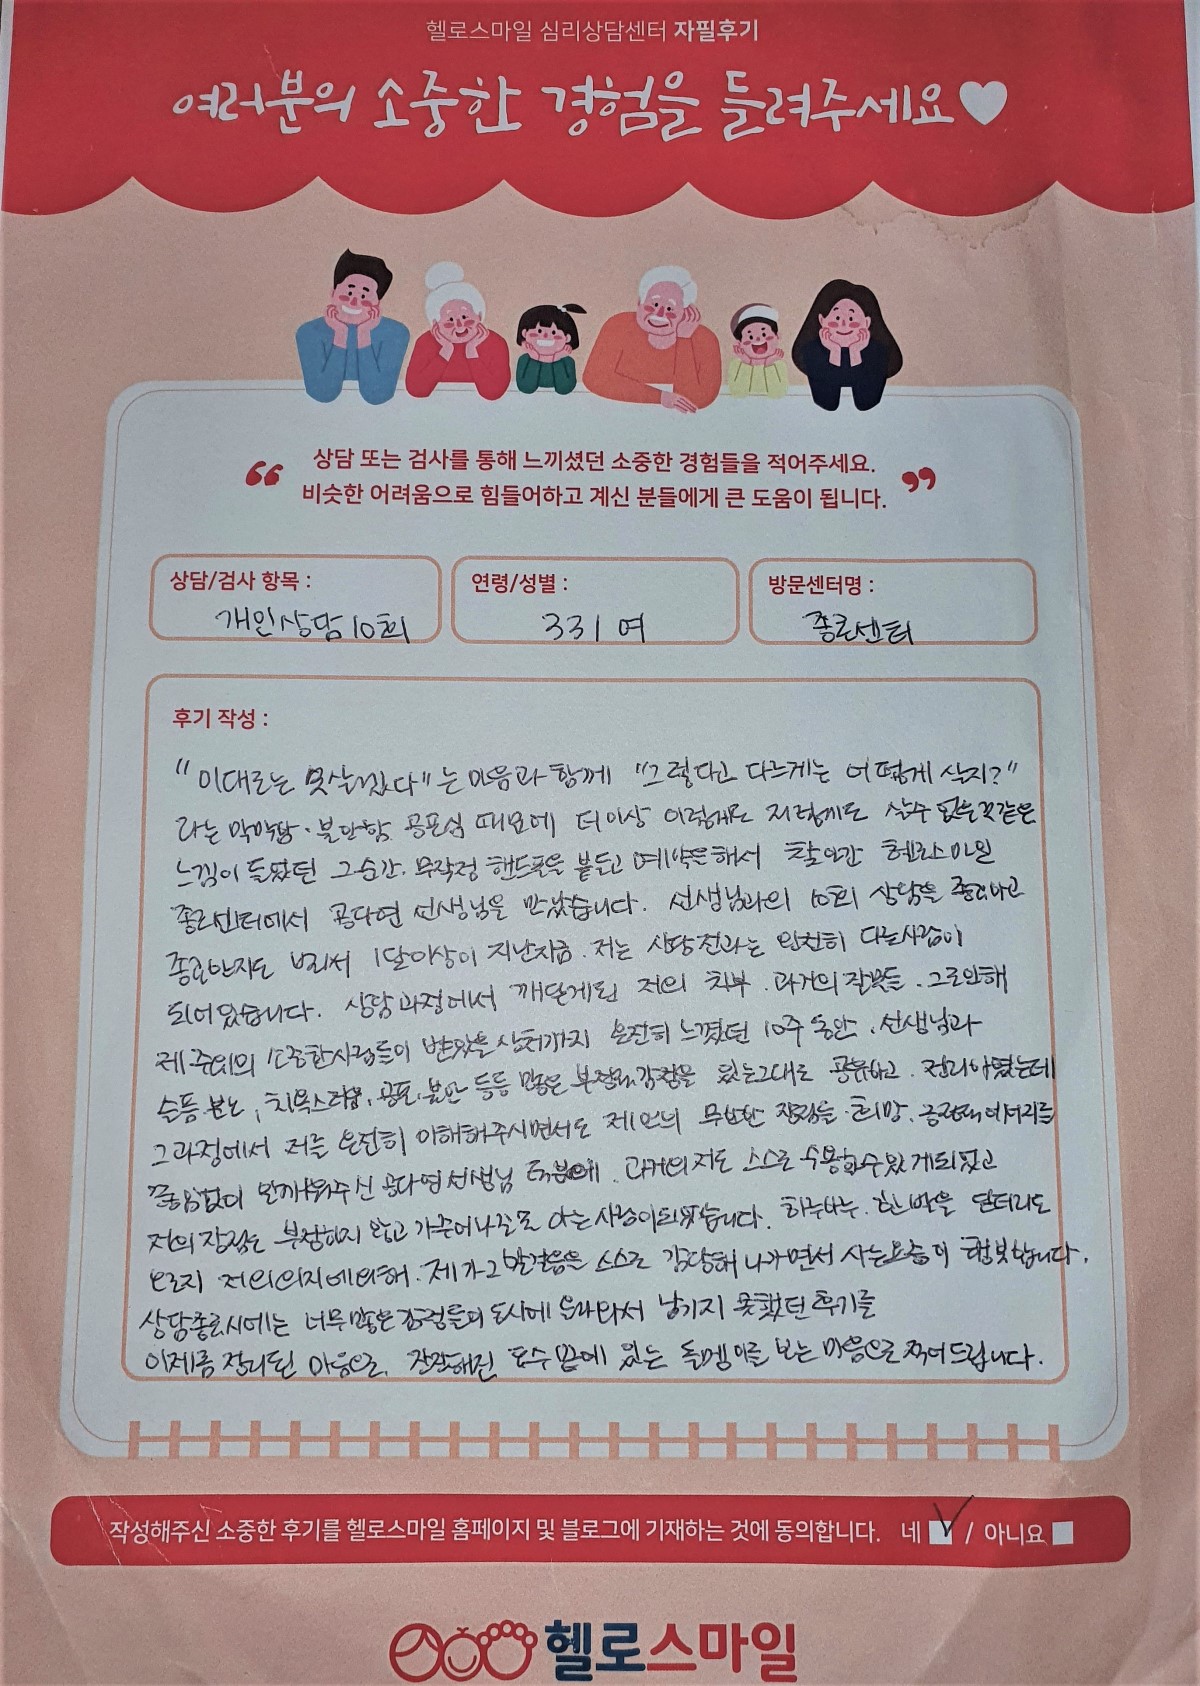 헬로스마일 심리상담센터 자필후기
여러분의 소중한 경험을 들려주세요♥
“ 상담 또는 검사를 통해 느끼셨던 소중한 경험들을 적어주세요.
비슷한 어려움으로 힘들어하고 계신 분들에게 큰 도움이 됩니다. ”
상담/검사 항목 : 개인상담 10회
연령/성별 : 33 / 여
방문센터명 : 종로센터
후기 작성 :
"이대로는 못살겠다"는 마음과 함께 "그렇다고 다르게는 어떻게 살지?"
라는 막막함·불안함, 공포심 때문에 더이상 이렇게도 저렇게도 살수 없을것같은
느낌이 들었던 그 순간. 무작정 핸드폰을 붙들고 예약을해서 찾아간 헬로스마일
종로센터에서 공다연 선생님을 만났습니다. 선생님과의 10회 상담을 종료하고
종료한지도 벌써 1달이상이 지난지금. 저는 상담전과는 완전히 다른사람이
되어있습니다. 상담과정에서 깨닫게된 저의 치부. 과거의 잘못들. 그로인해
제 주위의 소중한사람들이 받았을 상처까지 온전히 느꼈던 10주 동안, 선생님과
슬픔 분노, 치욕스러움, 공포, 불안 등등 많은 부정적 감정을 있는그대로 공유하고. 정리하였는데
그과정에서 저를 온전히 이해해주시면서도 제안의 무한한 장점들·희망, 긍정적 에너지를
끊임없이 일깨워주신 공다연선생님 덕분에. 과거의 저도 스스로 수용할수있게되었고
저의 장점은 부정하지 않고 가꾸어나갈줄 아는사람이되었습니다. 하루하루. 한 발을 딛더라도
오로지 저의의지에의해. 제가 그 발걸음을 스스로 감당해 나가면서 사는모습이 행복합니다.
상담종료시에는 너무많은감정들이 동시에 올라와서 남기지 못했던 후기를
이제좀 정리된 마음으로. 잔잔해진 호수 밑에 있는 돌멩이를 보는 마음으로 적어드립니다.
작성해주신 소중한 후기를 헬로스마일 홈페이지 및 블로그에 기재하는 것에 동의합니다. 네 ☑ / 아니요 ☐
헬로스마일